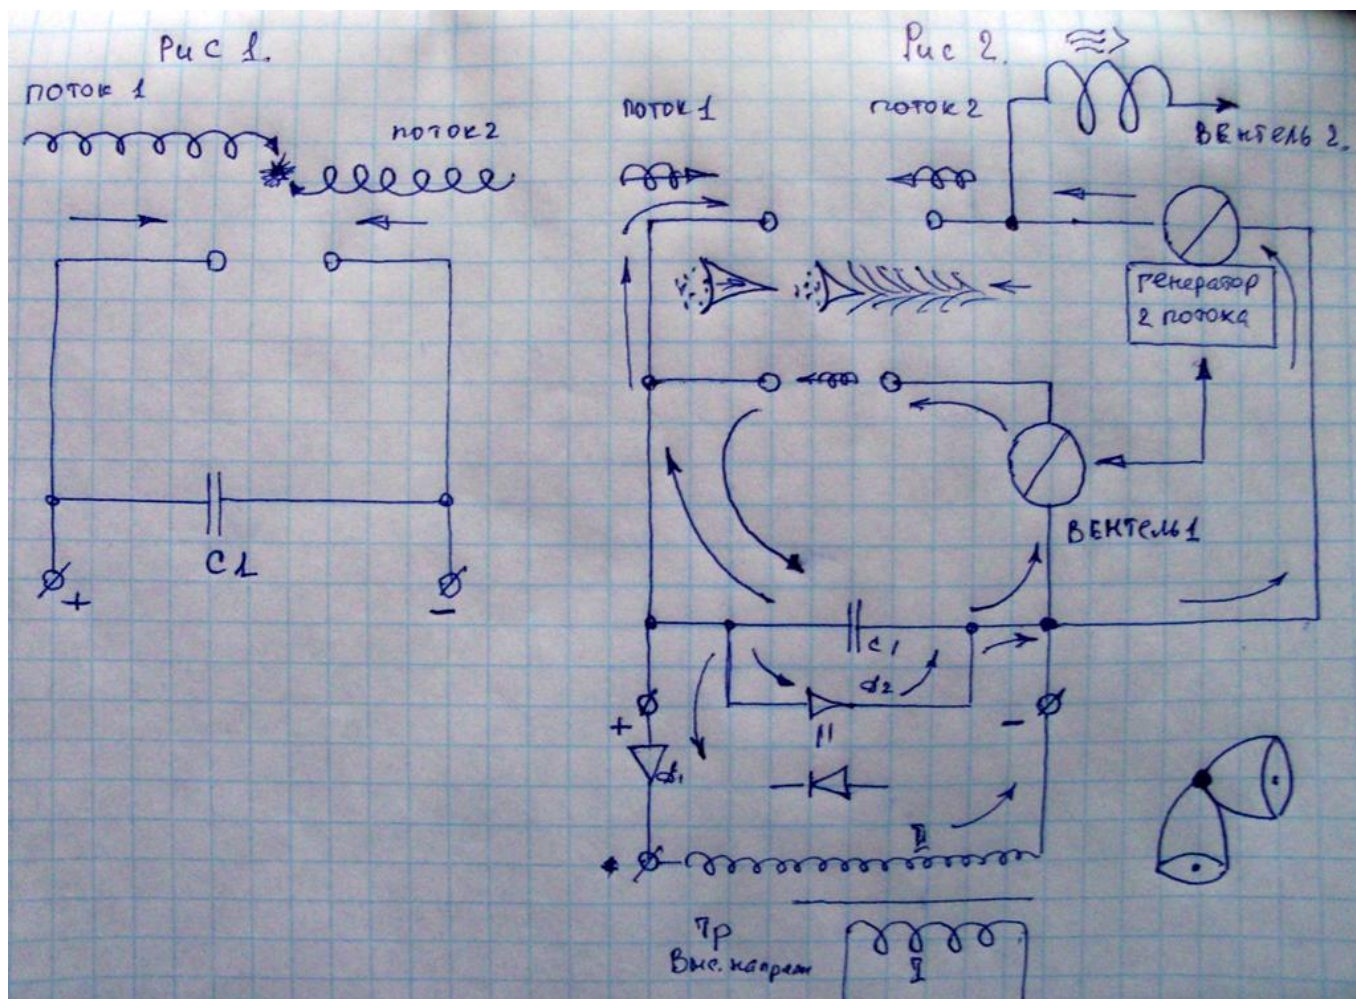 Рис 1.
поток 1
поток 2
C1
+
−
Рис 2.
поток 1
поток 2
ВЕНТЕЛЬ 2.
генератор
2 потока
ВЕНТЕЛЬ 1
C1
+
−
II
Тр
Выс. напряж
I